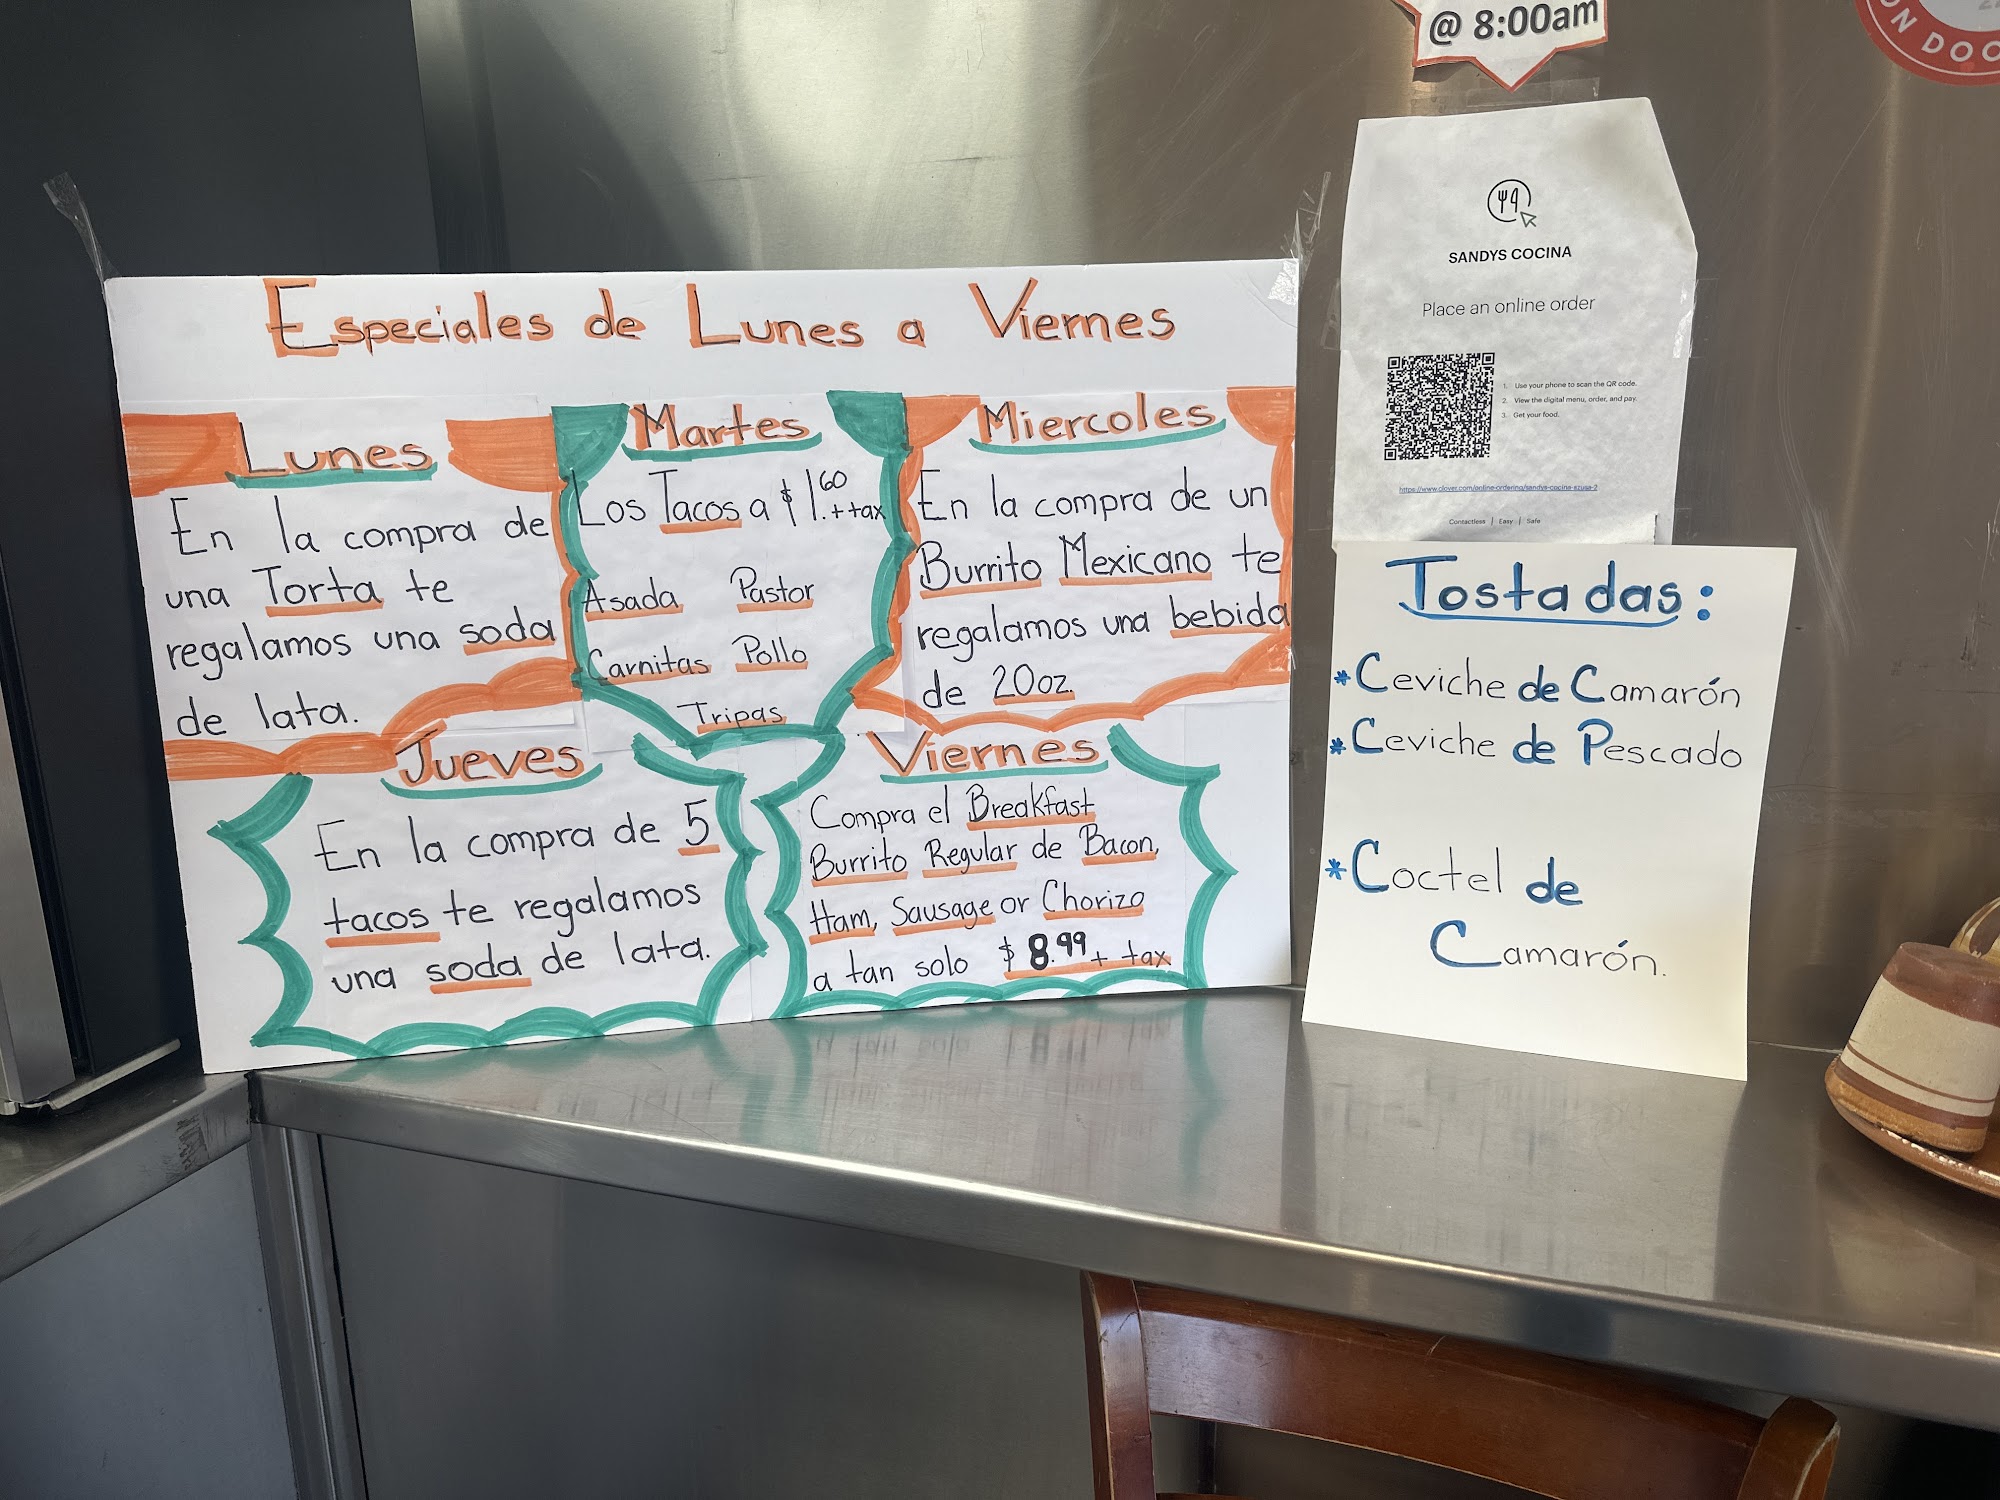 Especiales de Lunes a Viernes
Lunes
En la compra de
una Torta te
regalamos una soda
de lata.
Martes
Los Tacos a $1.60 + tax
Asada Pastor
Carnitas Pollo
Tripas
Miercoles
En la compra de un
Burrito Mexicano te
regalamos una bebida
de 20oz.
Jueves
En la compra de 5
tacos te regalamos
una soda de lata.
Viernes
Compra el Breakfast
Burrito Regular de Bacon,
Ham, Sausage or Chorizo
a tan solo $8.99 + tax
@ 8:00am
SANDYS COCINA
Place an online order
1. Use your phone to scan the QR code.
2. View the digital menu, order, and pay.
3. Get your food.
https://www.clover.com/online-ordering/sandys-cocina-azusa-2
Contactless | Easy | Safe
Tostadas:
*Ceviche de Camarón
*Ceviche de Pescado
*Coctel de
Camarón.